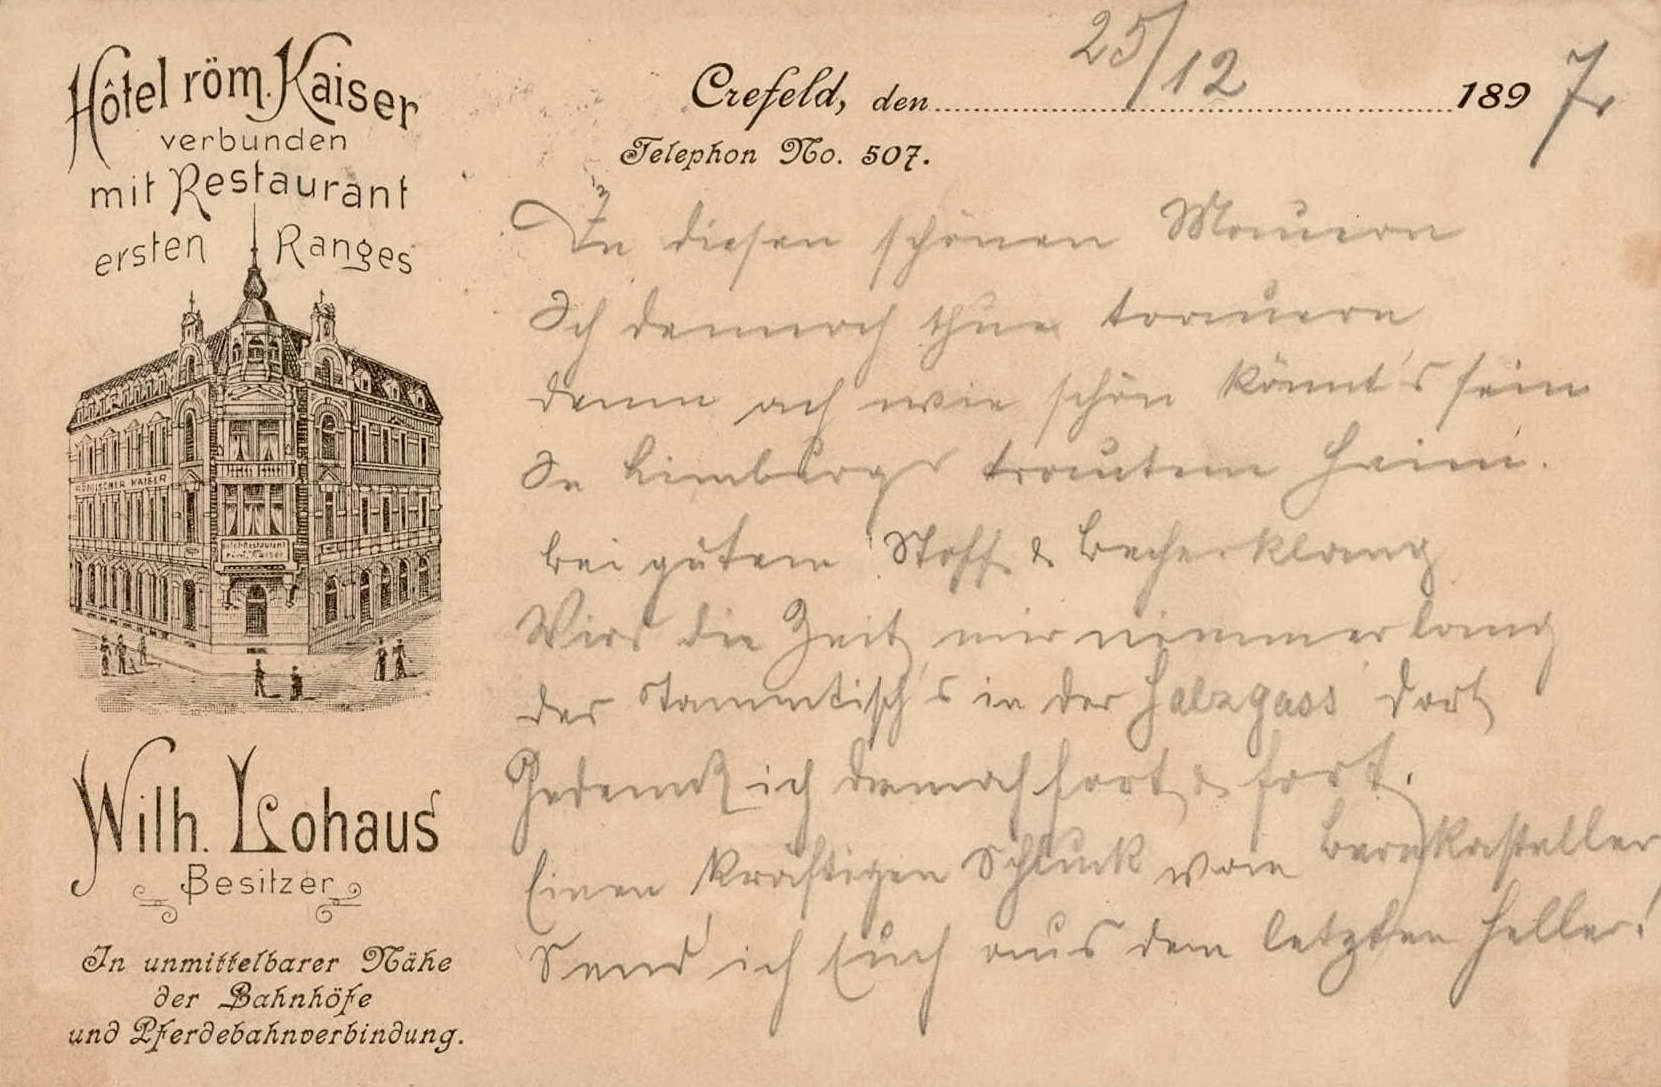 Hôtel röm. Kaiser
verbunden
mit Restaurant
ersten Ranges
RÖMISCHER KAISER
Hôtel-Restaurant
röm. Kaiser
Wilh. Lohaus
Besitzer
In unmittelbarer Nähe
der Bahnhöfe
und Pferdebahnverbindung.
Crefeld, den 25/12 1897
Telephon No. 507.
In diesen schönen Mauern
Ich dennoch thue trauern
denn ach wie schön könnt's sein
In Limburgs trautem Heim.
bei gutem Stoff & Becherklang
Wird die Zeit mir nimmer lang
der Stammtisch's in der Salzgass dort
Gedenk ich dennoch fort & fort.
Einen kräftigen Schluck vom Bernkasteller
Send ich Euch aus dem letzten Heller!